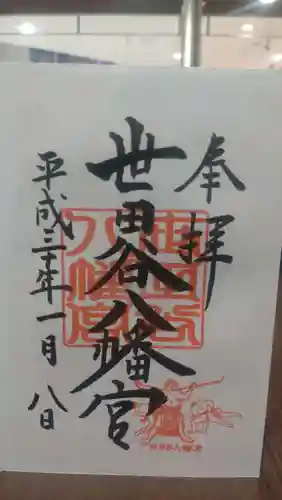 奉拝
世田谷八幡宮
平成三十年一月八日
世田谷
八幡宮